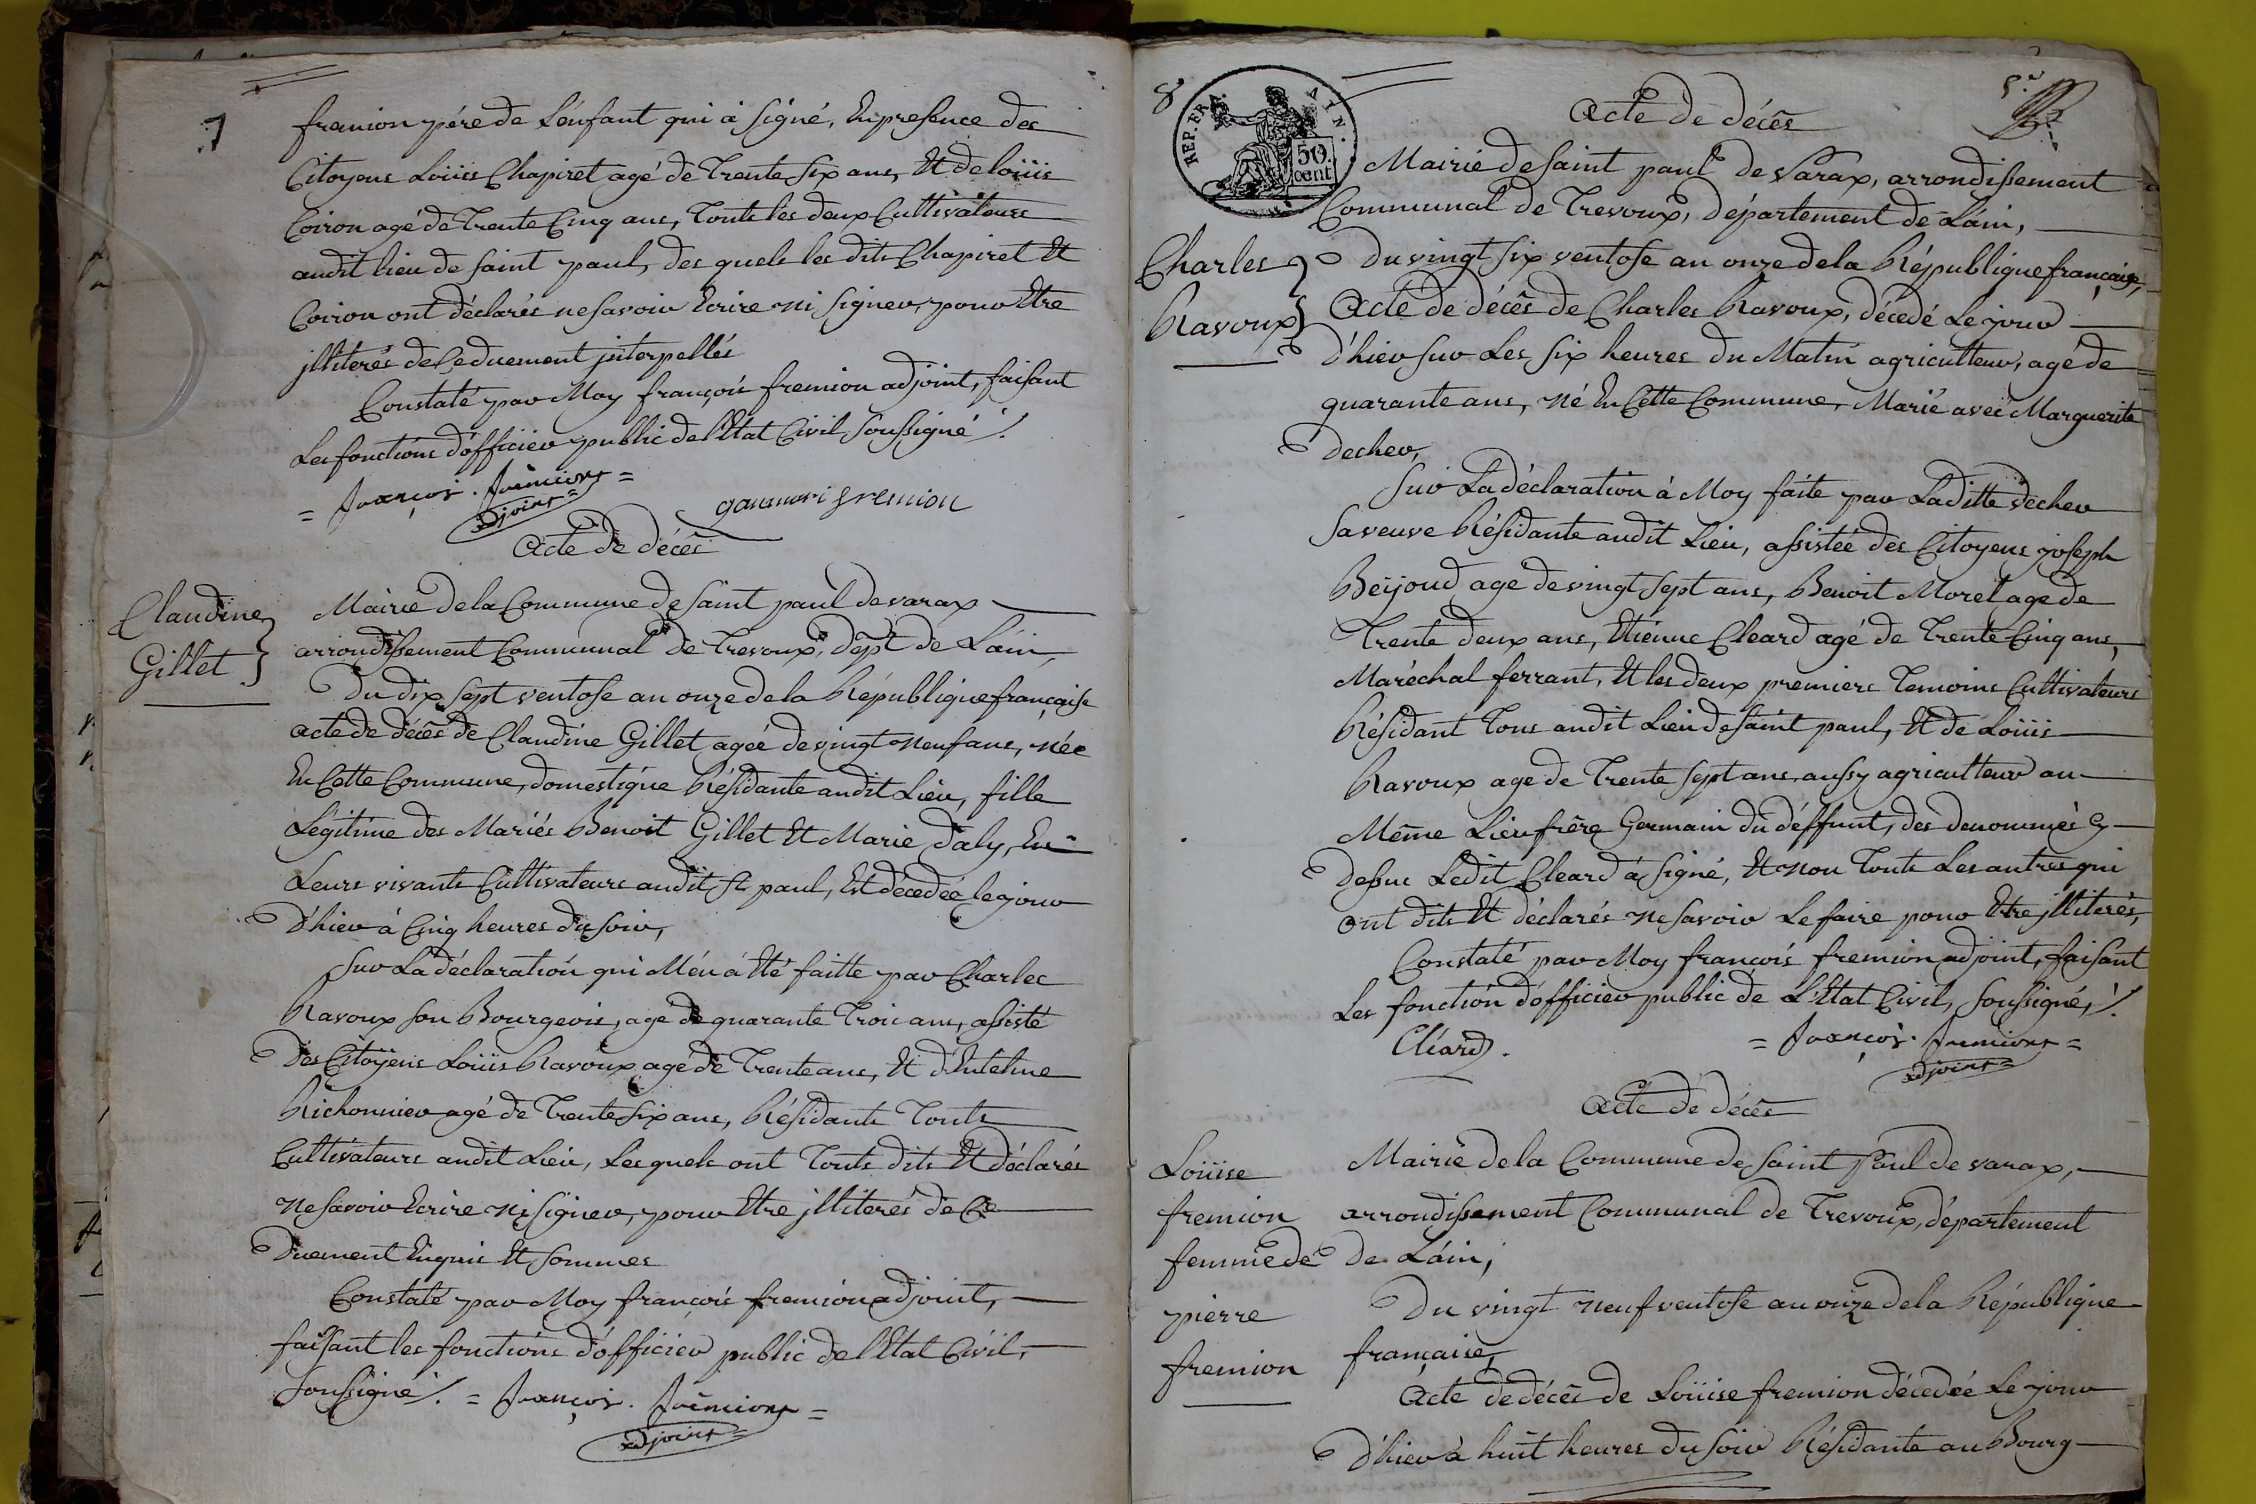 7
fremion père de L'enfant qui à signé, En presence des
Citoyens Loüis Chapiret agé de Trente six ans, Et de loüis
Coiron agé de Trente Cinq ans, Touts les deux Cultivateurs
audit lieu de saint paul, des quels les dits Chapiret Et
Coiron ont déclarés ne savoir Ecrire ni signer, pour Etre
jlliterés de Ce duement jnterpellés
Constaté par Moy françois fremion adjoint, faisant
Les fonctions d'officier public de l'Etat Civil, soussigné ./.
= françois . fremion =
adjoint =
fremion
Acte de décès
Claudine
Gillet
Mairie de la Commune de saint paul de varax
arrondissement Communal de Trevoux, dept de L'ain,
Du dix sept ventose an onze de la République française
acte de décès de Claudine Gillet agée de vingt neuf ans, née
En Cette Commune, domestique Résidante audit Lieu, fille
Légitime des Mariés Benoit Gillet Et Marie daly, En
Leurs vivants Cultivateurs audit St paul, Est décedée le jour
D'hier à Cinq heures du soir,
Sur La déclaration qui M'en á Eté faitte par Charles
Ravoux son Bourgeois, agé de quarante Trois ans, assisté
Des Citoyens Loüis Ravoux agé de Trente ans, Et d'Antelme
Richonnier agé de Trente six ans, Résidants Touts
Cultivateurs audit Lieu, Lesquels ont Touts dits Et déclarés
ne savoir Ecrire ni signer, pour Etre jlliterés de Ce
Duement Enquis Et sommes
Constaté par Moy françois fremion adjoint,
faisant les fonctions d'officier public de l'Etat Civil,
soussigné ./. = françois . fremion =
adjoint =
8
REP. FRA.
AIN.
50
cent
5e
Acte de décès
Mairie de saint paul de varax, arrondissement
Communal de Trevoux, département de L'ain,
Charles
Ravoux
Du vingt six ventose an onze de la République française,
Acte de décès de Charles Ravoux, décedé Le jour
D'hier sur Les six heures du Matin agriculteur, agé de
quarante ans, né En Cette Commune, Marié avec Marguerite
Decher,
Sur La déclaration à Moy faite par Laditte decher
sa veuve Résidante audit Lieu, assistée des Citoyens joseph
Béÿoud agé de vingt sept ans, Benoit Morel agé de
Trente deux ans, Etiénne Cleard agé de Trente Cinq ans,
Maréchal ferrant, Et les deux premiers Temoins Cultivateurs
Résidant Tous audit Lieu de saint paul, Et de Loüis
Ravoux agé de Trente sept ans, aussy agriculteur au
Même Lieu frère Germain du déffunt, des denommés Cy
dessus Ledit Cleard à signé, Et non Touts Les autres qui
ont dits Et déclarés ne savoir Le faire pour Etre jlliterés,
Constaté par Moy françois fremion adjoint, faisant
Les fonction d'officier public de L'Etat Civil, soussigné, ./.
Cléard.
= françois . fremion =
adjoint =
Acte de décès
Loüise
fremion
femme de
pierre
fremion
Mairie de la Commune de saint Paul de varax,
arrondissement Communal de Trevoux, département
de L'ain,
Du vingt neuf ventose an onze de la République
française,
Acte de décès de Loüise fremion décedée Le jour
D'hier à huit heures du soir Résidante au Bourg